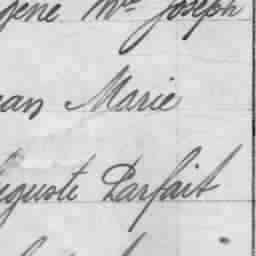 gène Mie Joseph
ean Marie
uguste Parfait